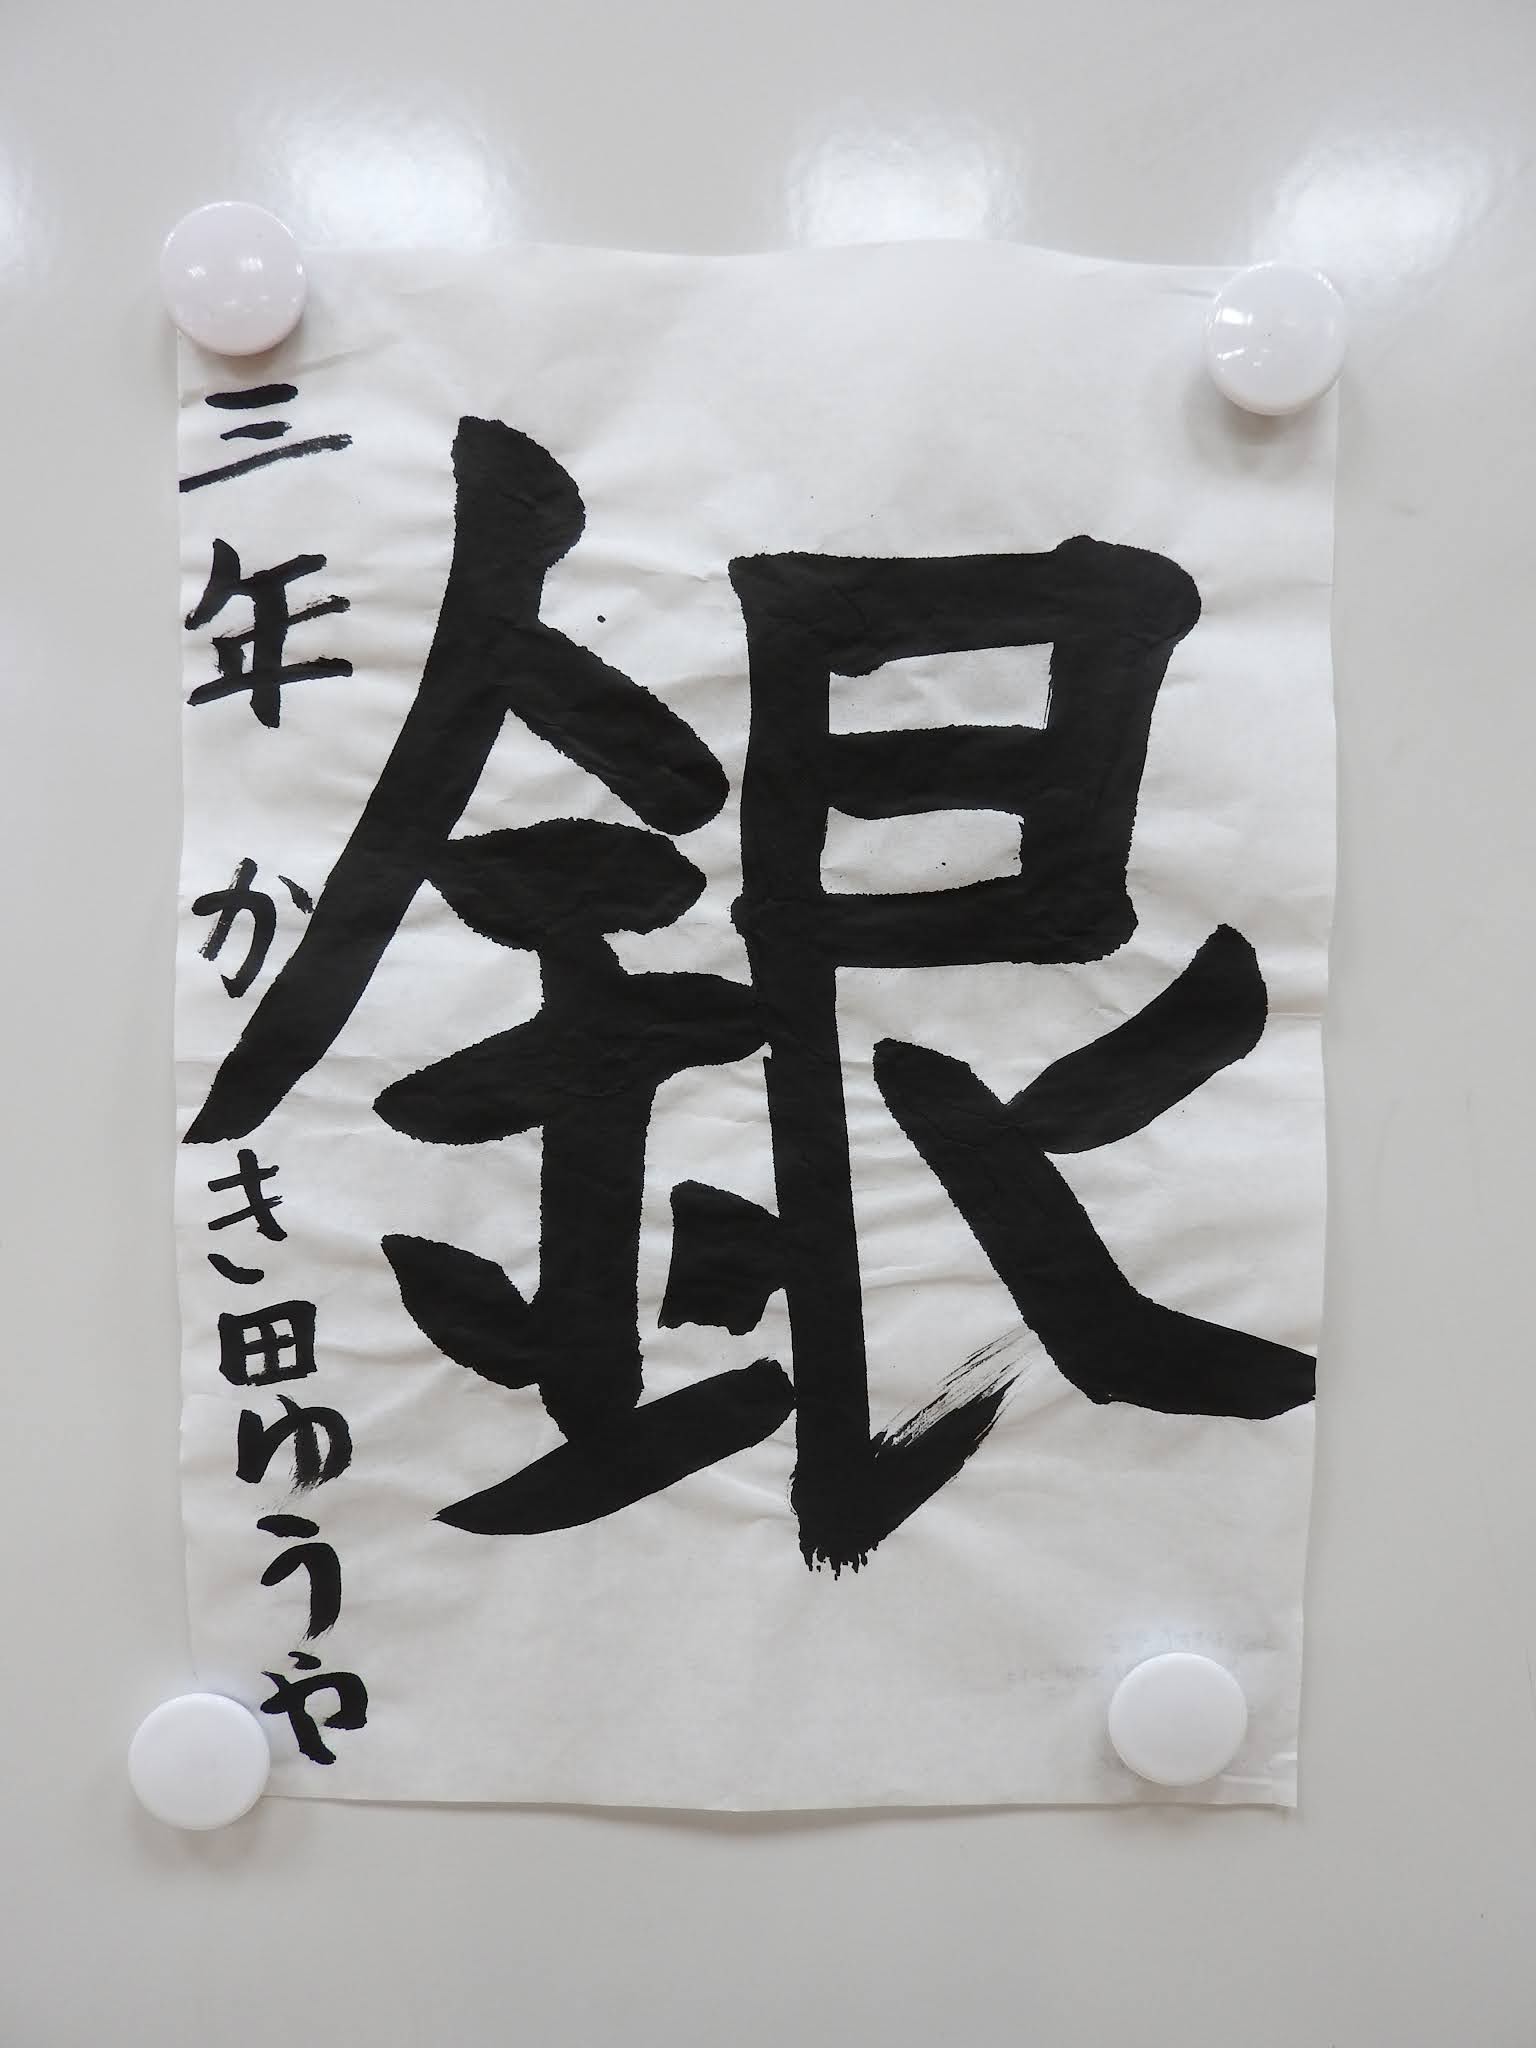 銀
三年 かき田ゆうや